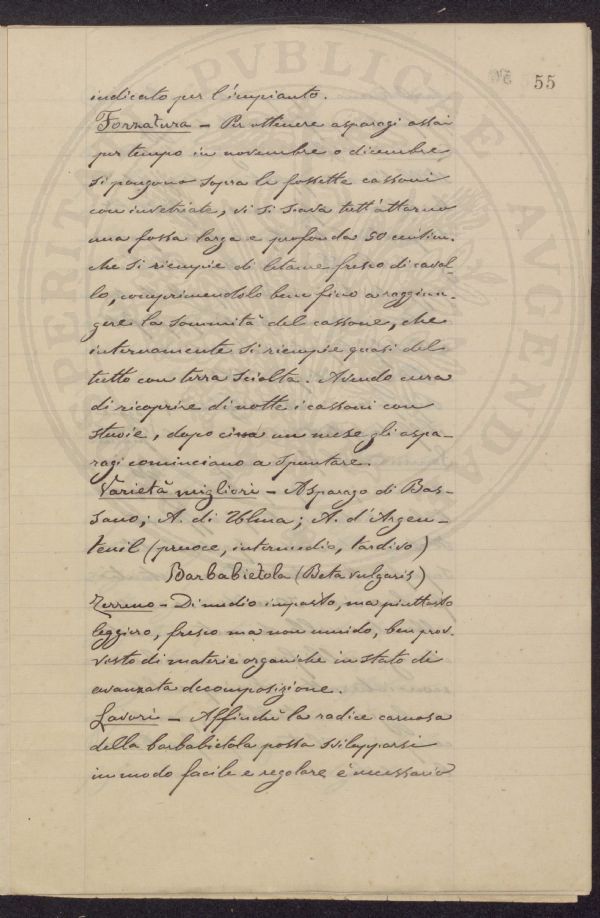 55
indicato per l'impianto.
Forzatura - Per ottenere asparagi assai
per tempo in novembre o dicembre,
si pongono sopra le fossette cassoni
con invetriate, vi si scava tutt'attorno
una fossa larga e profonda 50 centim.
che si riempie di letame fresco di caval-
lo, comprimendolo bene fino a raggiun-
gere la sommità del cassone, che
internamente si riempie quasi del
tutto con terra sciolta. Avendo cura
di ricoprire di notte i cassoni con
stuoie, dopo circa un mese gli aspa-
ragi cominciano a spuntare.
Varietà migliori - Asparago di Bas-
sano; A. di Ulma; A. d'Argen-
teuil (precoce, intermedio, tardivo)
Barbabietola (Beta vulgaris)
Terreno - Di medio impasto, ma piuttosto
leggiero, fresco ma non umido, ben prov-
visto di materie organiche in stato di
avanzata decomposizione.
Lavori - Affinchè la radice carnosa
della barbabietola possa svilupparsi
in modo facile e regolare è necessario
PVBLICAE AVGENDAE